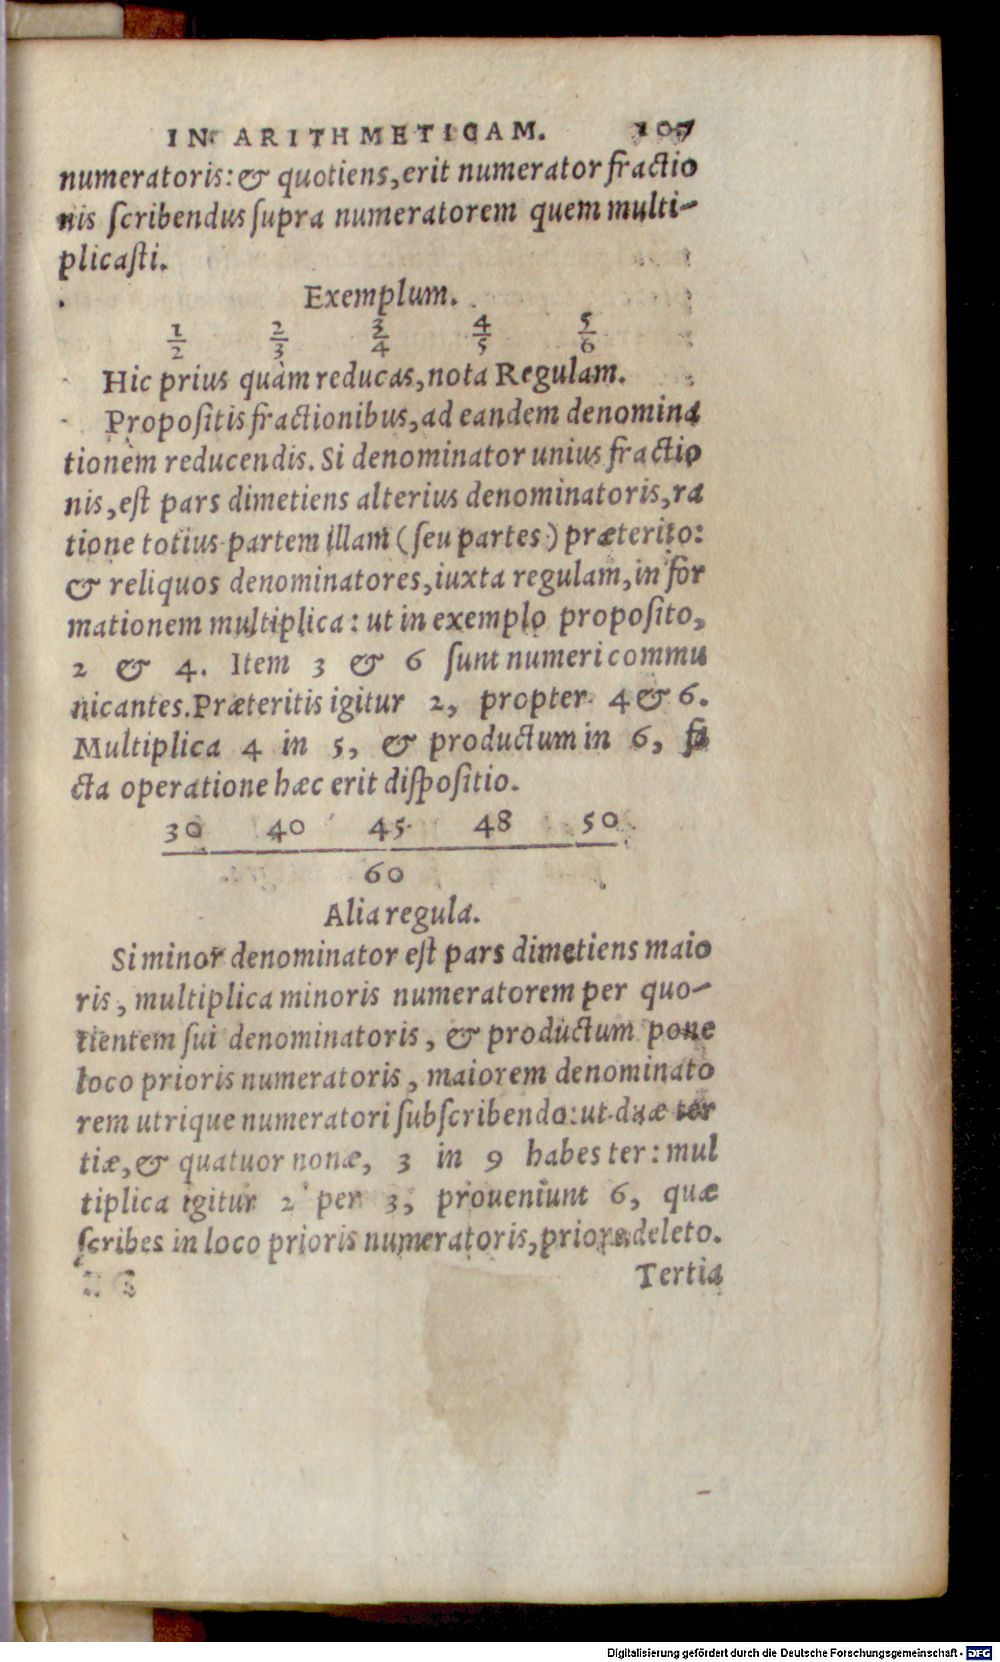 IN ARITHMETICAM. 107
numeratoris: & quotiens, erit numerator fractio
nis ſcribendus ſupra numeratorem quem multi-
plicaſti.
Exemplum.
1/2 2/3 3/4 4/5 5/6
Hic prius quàm reducas, nota Regulam.
Propoſitis fractionibus, ad eandem denomina
tionem reducendis. Si denominator unius fractio
nis, eſt pars dimetiens alterius denominatoris, ra
tione totius partem illam (ſeu partes) præterito:
& reliquos denominatores, iuxta regulam, in for
mationem multiplica: ut in exemplo propoſito,
2 & 4. Item 3 & 6 ſunt numeri commu
nicantes. Præteritis igitur 2, propter 4 & 6.
Multiplica 4 in 5, & productum in 6, fa
cta operatione hæc erit diſpoſitio.
30 40 45 48 50
60
Alia regula.
Si minor denominator eſt pars dimetiens maio
ris, multiplica minoris numeratorem per quo-
tientem ſui denominatoris, & productum pone
loco prioris numeratoris, maiorem denominato
rem utrique numeratori ſubſcribendo: ut duæ ter
tiæ, & quatuor nonæ, 3 in 9 habes ter: mul
tiplica igitur 2 per 3, proueniunt 6, quæ
ſcribes in loco prioris numeratoris, priore deleto.
Tertia
Digitalisierung gefördert durch die Deutsche Forschungsgemeinschaft - DFG